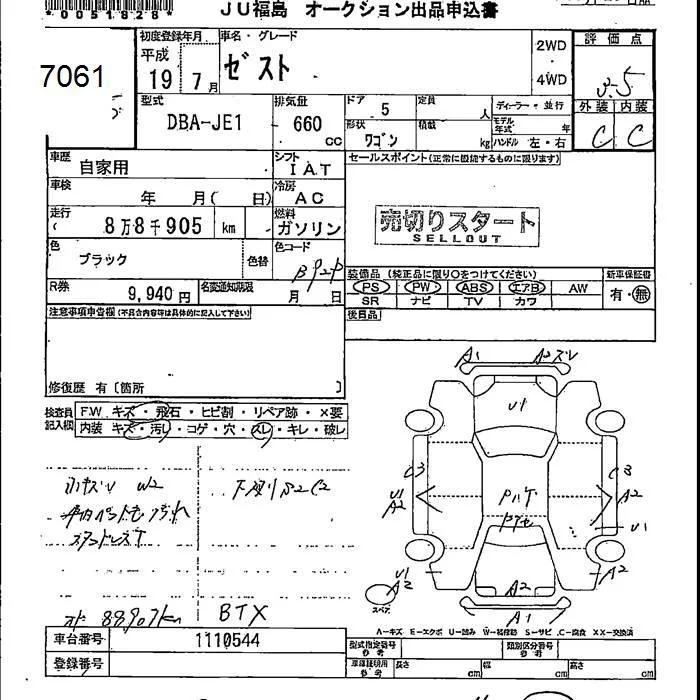 *0051828*
JU福島 オークション出品申込書
7061
初度登録年月
車名・グレード
平成
19年7月
ゼスト
2WD
4WD
評価点
3.5
外装 内装
C C
型式
DBA-JE1
排気量
660
cc
ドア
5
定員
人
形状
ワゴン
積載
kg
ディーラー・並行
モデル年式
年
ハンドル 左・右
車歴
自家用
シフト
IAT
セールスポイント(正常に機能するものに限ります)
車検
年 月( 日)
冷房
AC
走行
8万8千905 km
燃料
ガソリン
売切りスタート
SELLOUT
色
ブラック
色替
色コード
B92P
装備品(純正品に限り○をつけてください)
新車保証書
PS PW ABS エアB AW
SR ナビ TV カワ
有・無
R券
9,940円
名変通知期限
月 日
後日品
注意事項申告欄(不具合内容等は具体的に記入して下さい)
修復歴 有〔箇所 〕
検査員記入欄
F.W キズ・飛石・ヒビ割・リペア跡・×要
内装 キズ・汚し・コゲ・穴・スレ・キレ・破レ
A1
U1
C3
C3
U1
A2
A2
U1
U1
A2
A2
A2
A1
スペア
小キズU W2
下廻りS2C2
スタッドレスT
88907km
BTX
A-キズ E-エクボ U-凹み W-補修跡 S-サビ C-腐食 XX-交換済
車台番号
1110544
登録番号
型式指定番号
参考
類別区分番号
参考
車庫証明用
参考
長さ
cm
幅
cm
高さ
cm